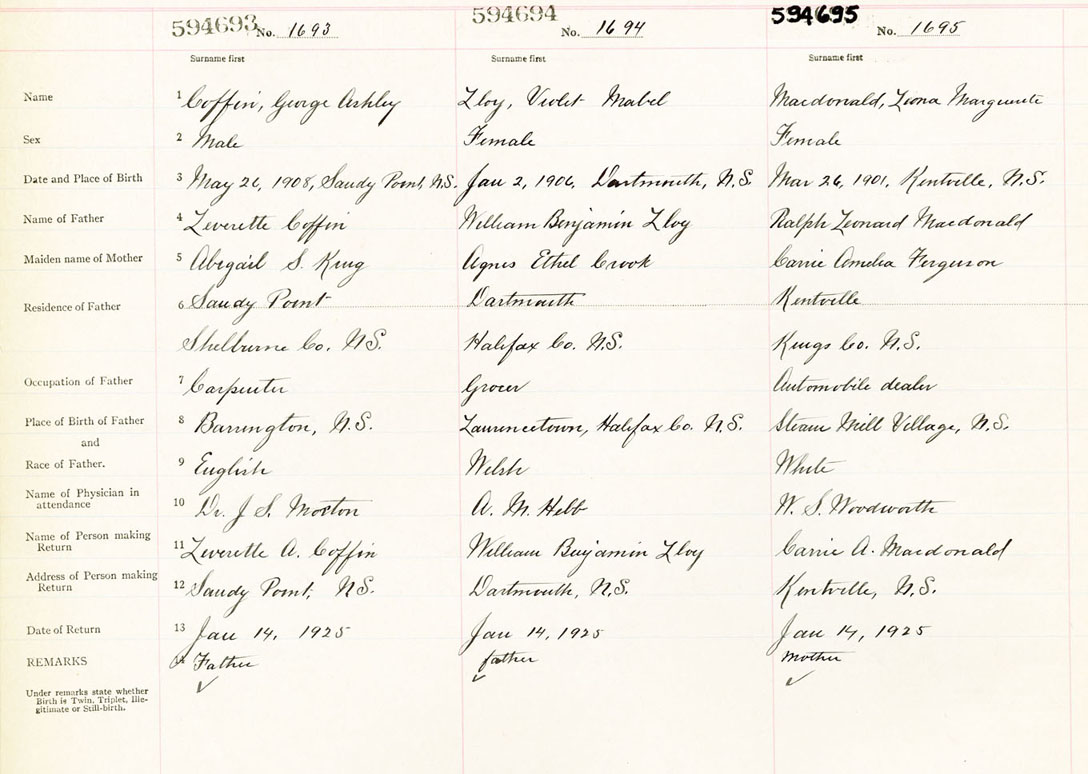 594693 No. 1693 594694 No. 1694 594695 No. 1695
Surname first Surname first Surname first
Name 1 Coffin, George Ashley Lloy, Violet Mabel Macdonald, Leona Marguerite
Sex 2 Male Female Female
Date and Place of Birth 3 May 26, 1908, Sandy Point, N.S. Jan 2, 1906, Dartmouth, N.S. Mar 26, 1901, Kentville, N.S.
Name of Father 4 Leverette Coffin William Benjamin Lloy Ralph Leonard Macdonald
Maiden name of Mother 5 Abegail S. King Agnes Ethel Crook Carrie Amelia Ferguson
Residence of Father 6 Sandy Point Dartmouth Kentville
Shelburne Co. N.S. Halifax Co. N.S. Kings Co. N.S.
Occupation of Father 7 Carpenter Grocer Automobile dealer
Place of Birth of Father 8 Barrington, N.S. Lawrencetown, Halifax Co. N.S. Steam Mill Village, N.S.
and
Race of Father. 9 English Welsh White
Name of Physician in
attendance 10 Dr. J S. Morton A. M. Hebb W. S. Woodworth
Name of Person making
Return 11 Leverette A. Coffin William Benjamin Lloy Carrie A. Macdonald
Address of Person making
Return 12 Sandy Point, N.S. Dartmouth, N.S. Kentville, N.S.
Date of Return 13 Jan 14, 1925 Jan 14, 1925 Jan 14, 1925
REMARKS 14 Father father mother
Under remarks state whether
Birth is Twin, Triplet, Ille-
gitimate or Still-birth.